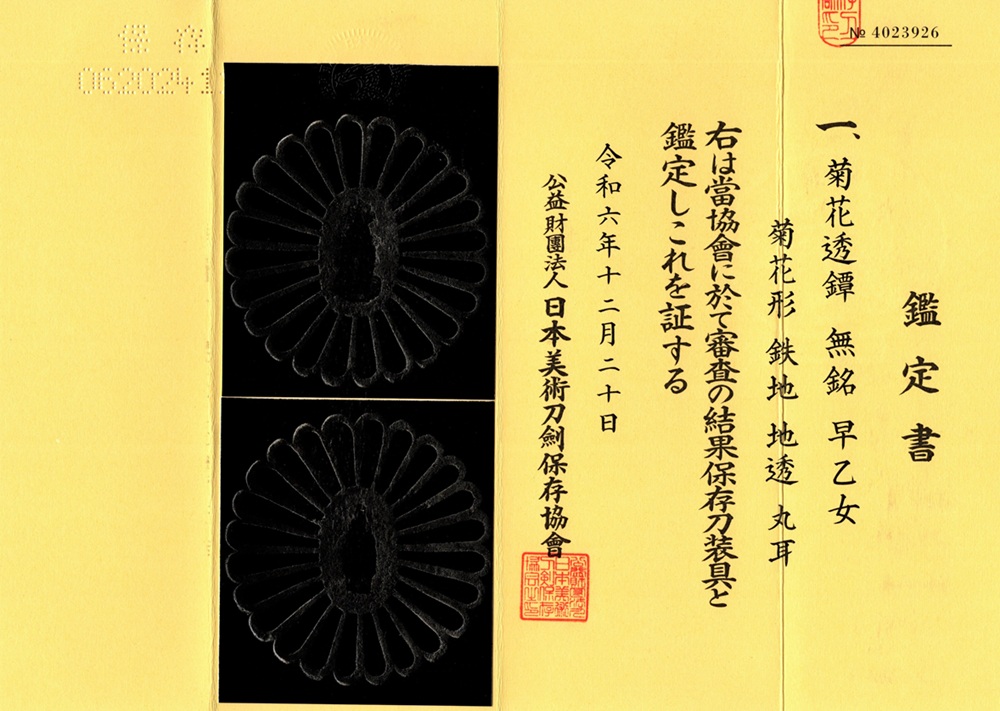 № 4023926
鑑定書
一、菊花透鐔 無銘 早乙女
菊花形 鉄地 地透 丸耳
右は當協會に於て審査の結果保存刀装具と
鑑定しこれを証する
令和六年十二月二十日
公益財團法人 日本美術刀劍保存協會
保存
0620241